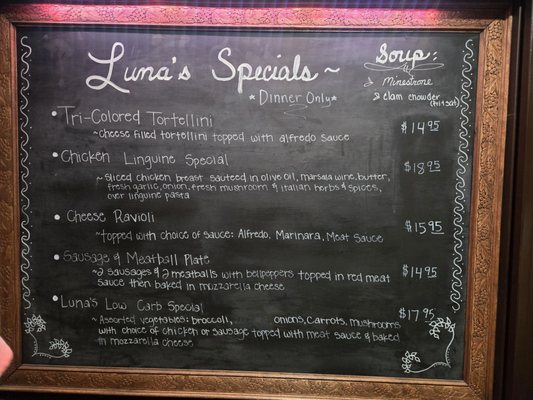 Luna's Specials ~
*Dinner Only*
Soup:
› Minestrone
2 clam chowder
(fri & sat)
• Tri-Colored Tortellini $14.95
~ cheese filled tortellini topped with alfredo sauce
• Chicken Linguine Special $18.95
~ sliced chicken breast sauteed in olive oil, marsala wine, butter,
fresh garlic, onion, fresh mushroom & italian herbs & spices,
over linguine pasta
• Cheese Ravioli $15.95
~topped with choice of sauce: Alfredo, Marinara, Meat Sauce
• Sausage & Meatball Plate $14.95
~2 sausages & 2 meatballs with bellpeppers topped in red meat
sauce then baked in mozzarella cheese
• Luna's Low Carb Special $17.95
~ Assorted vegetables: broccoli, onions, carrots, mushrooms
with choice of chicken or sausage topped with meat sauce & baked
in mozzarella cheese